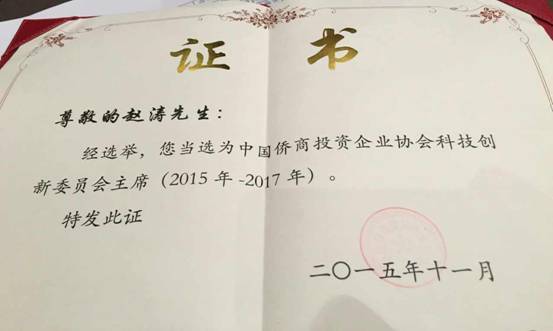 证 书
尊敬的赵涛先生：
经选举，您当选为中国侨商投资企业协会科技创
新委员会主席（2015年-2017年）。
特发此证
二〇一五年十一月